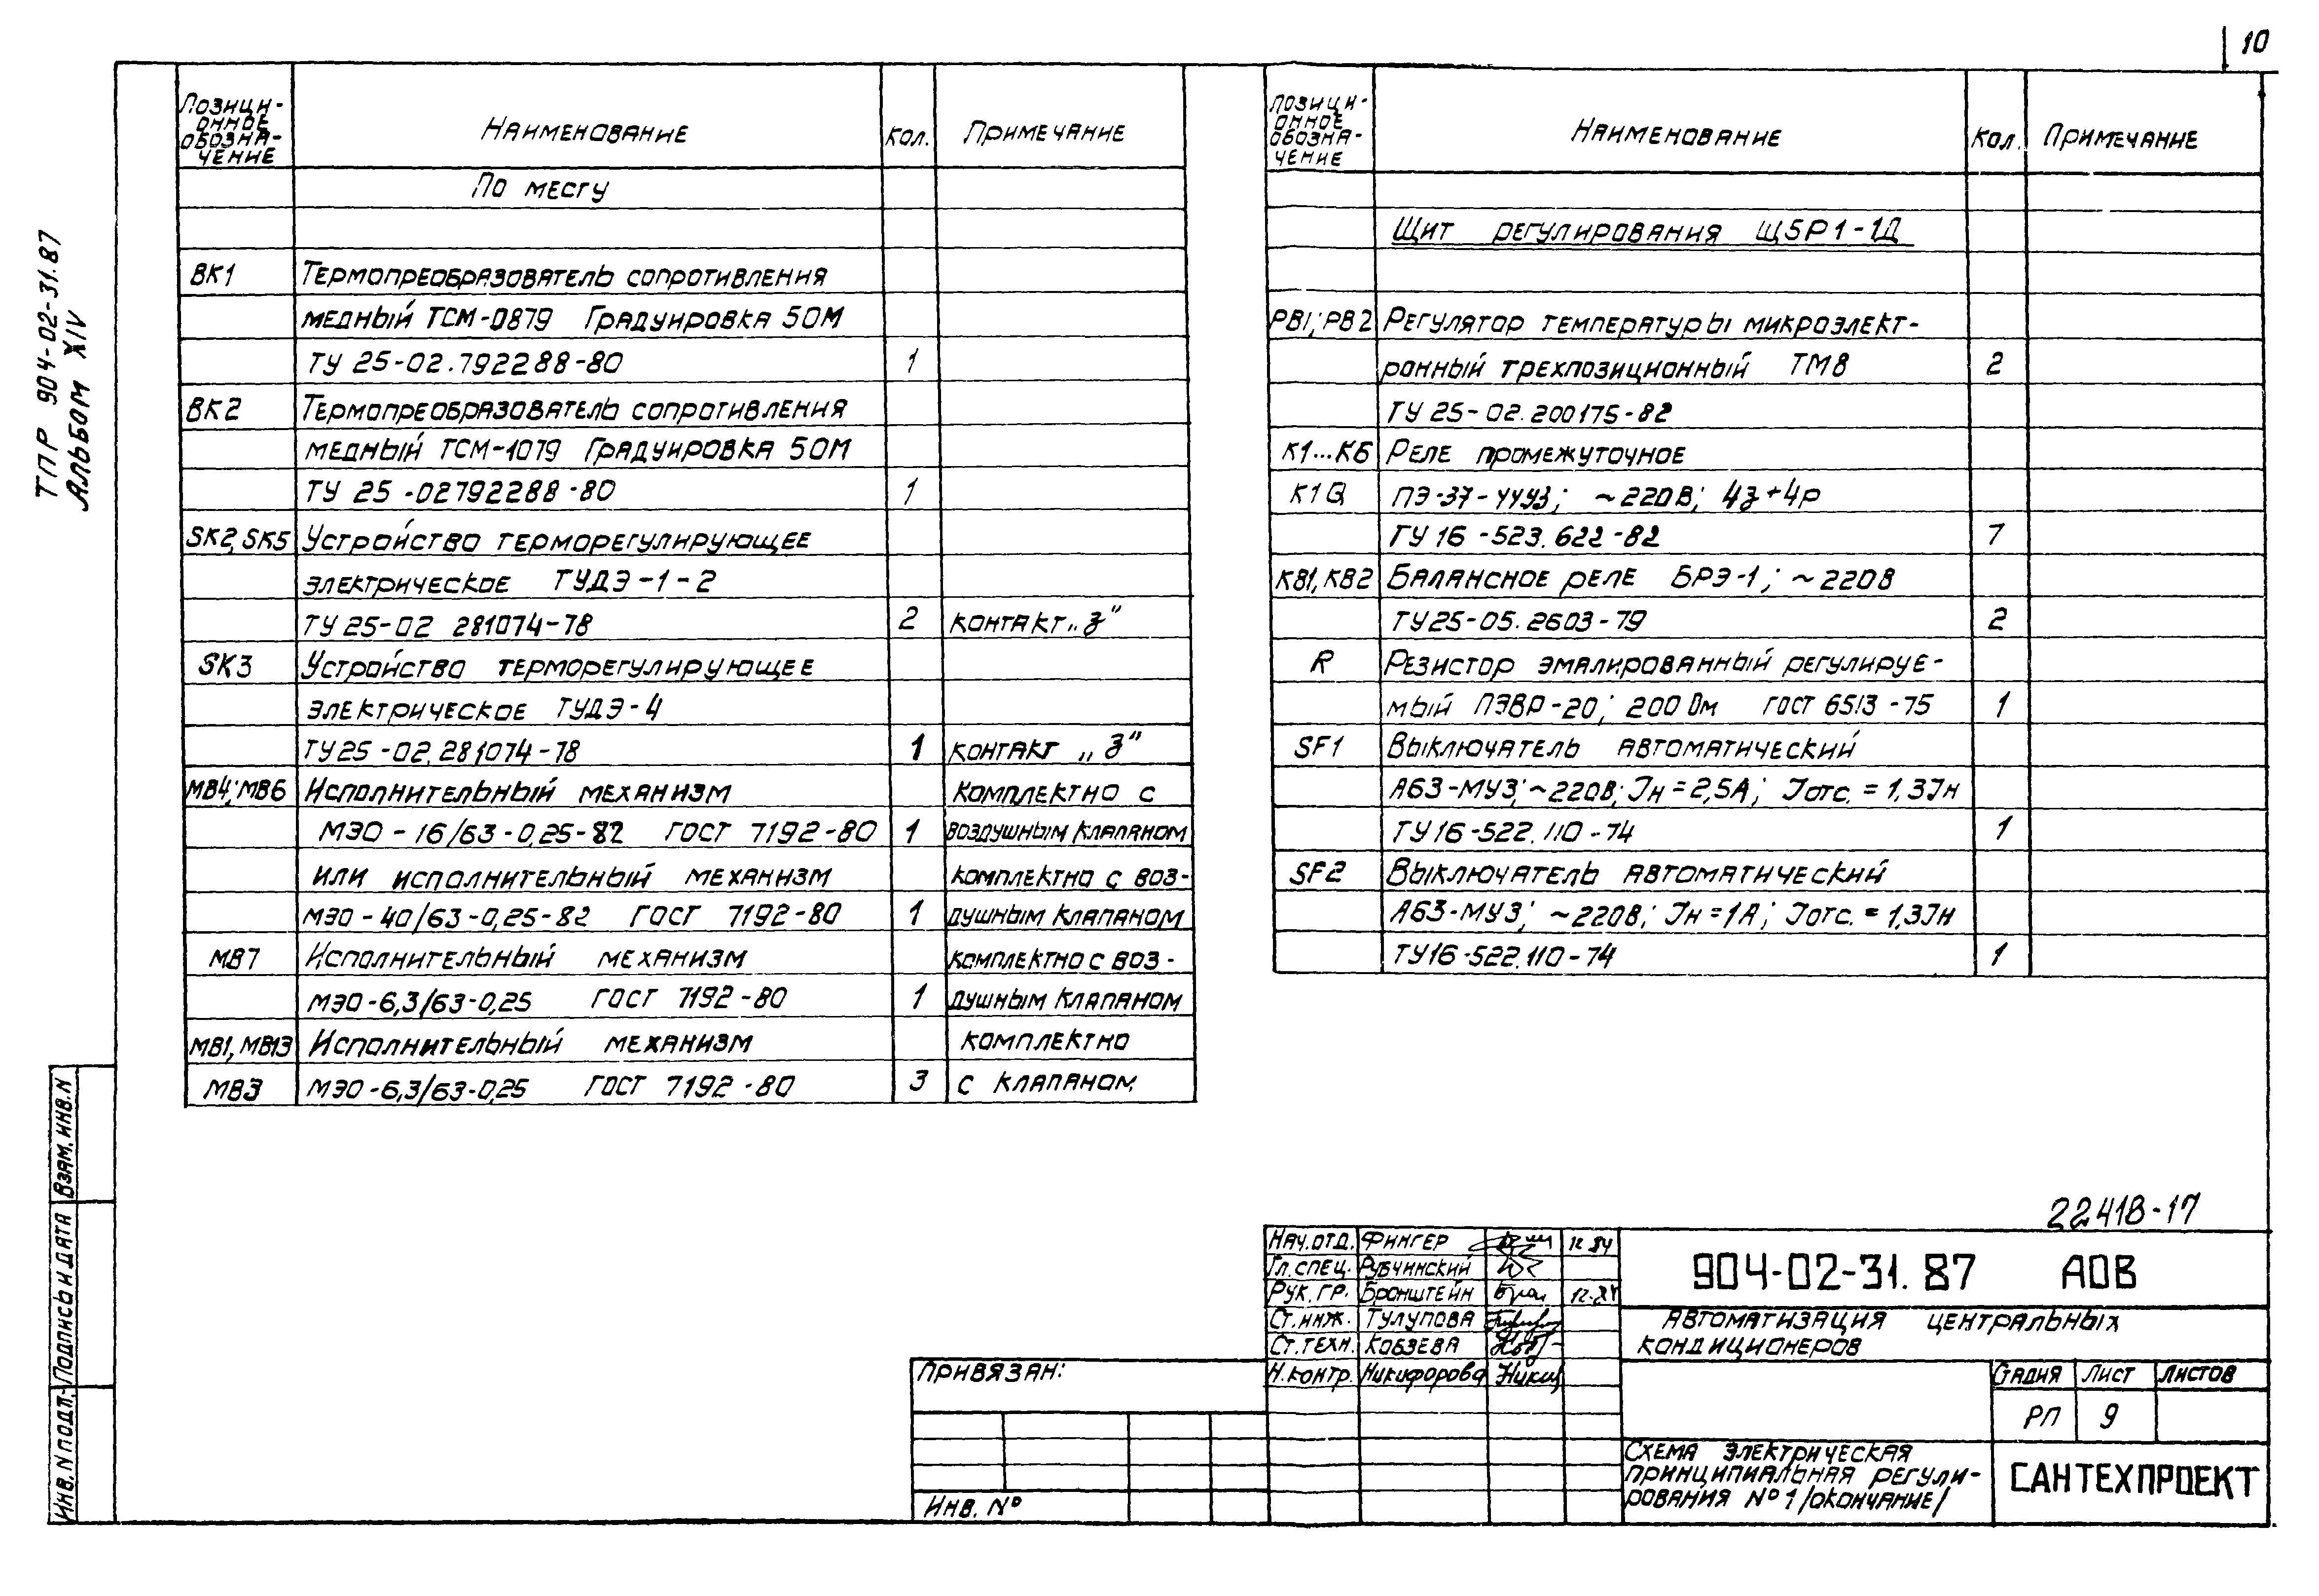 10
ТПР 904-02-31.87
Альбом XIV
Позици-
онное
обозна-
чение
Наименование
Кол.
Примечание
По месту
ВК1 Термопреобразователь сопротивления
медный ТСМ-0879 Градуировка 50М
ТУ 25-02.792288-80 1
ВК2 Термопреобразователь сопротивления
медный ТСМ-1079 Градуировка 50М
ТУ 25-02792288-80 1
SK2, SK5 Устройство терморегулирующее
электрическое ТУДЭ-1-2
ТУ 25-02 281074-78 2 контакт „з"
SK3 Устройство терморегулирующее
электрическое ТУДЭ-4
ТУ25-02.281074-78 1 контакт „з"
МВ4; МВ6 Исполнительный механизм комплектно с
МЭО-16/63-0,25-82 ГОСТ 7192-80 1 воздушным клапаном
или исполнительный механизм комплектно с воз-
МЭО-40/63-0,25-82 ГОСТ 7192-80 1 душным клапаном
МВ7 Исполнительный механизм комплектно с воз-
МЭО-6,3/63-0,25 ГОСТ 7192-80 1 душным клапаном
МВ1, МВ13 Исполнительный механизм комплектно
МВ3 МЭО-6,3/63-0,25 ГОСТ 7192-80 3 с клапаном
Позици-
онное
обозна-
чение
Наименование
Кол.
Примечание
Щит регулирования Щ5Р1-1Д
РВ1; РВ2 Регулятор температуры микроэлект-
ронный трехпозиционный ТМ8 2
ТУ 25-02.200175-82
К1...К6 Реле промежуточное
К1Q ПЭ-37-44У3; ~220В; 4з+4р
ТУ 16-523.622-82 7
КВ1, КВ2 Балансное реле БРЭ-1; ~220В
ТУ25-05.2603-79 2
R Резистор эмалированный регулируе-
мый ПЭВР-20; 200 Ом ГОСТ 6513-75 1
SF1 Выключатель автоматический
А63-МУ3; ~220В; Iн=2,5А; Iотс.=1,3Iн
ТУ16-522.110-74 1
SF2 Выключатель автоматический
А63-МУ3; ~220В; Iн=1А; Iотс.=1,3Iн
ТУ16-522.110-74 1
Инв. N подл. Подпись и дата Взам. инв. N
22418-17
Нач. отд. Фингер 12.84
Гл. спец. Рубчинский
Рук. гр. Бронштейн
Ст. инж. Тулупова
Ст. техн. Кобзева
Н. контр. Никифорова
904-02-31.87 АОВ
Автоматизация центральных
кондиционеров
Стадия Лист Листов
РП 9
Схема электрическая
принципиальная регули-
рования №1 /окончание/
САНТЕХПРОЕКТ
Привязан:
Инв. №